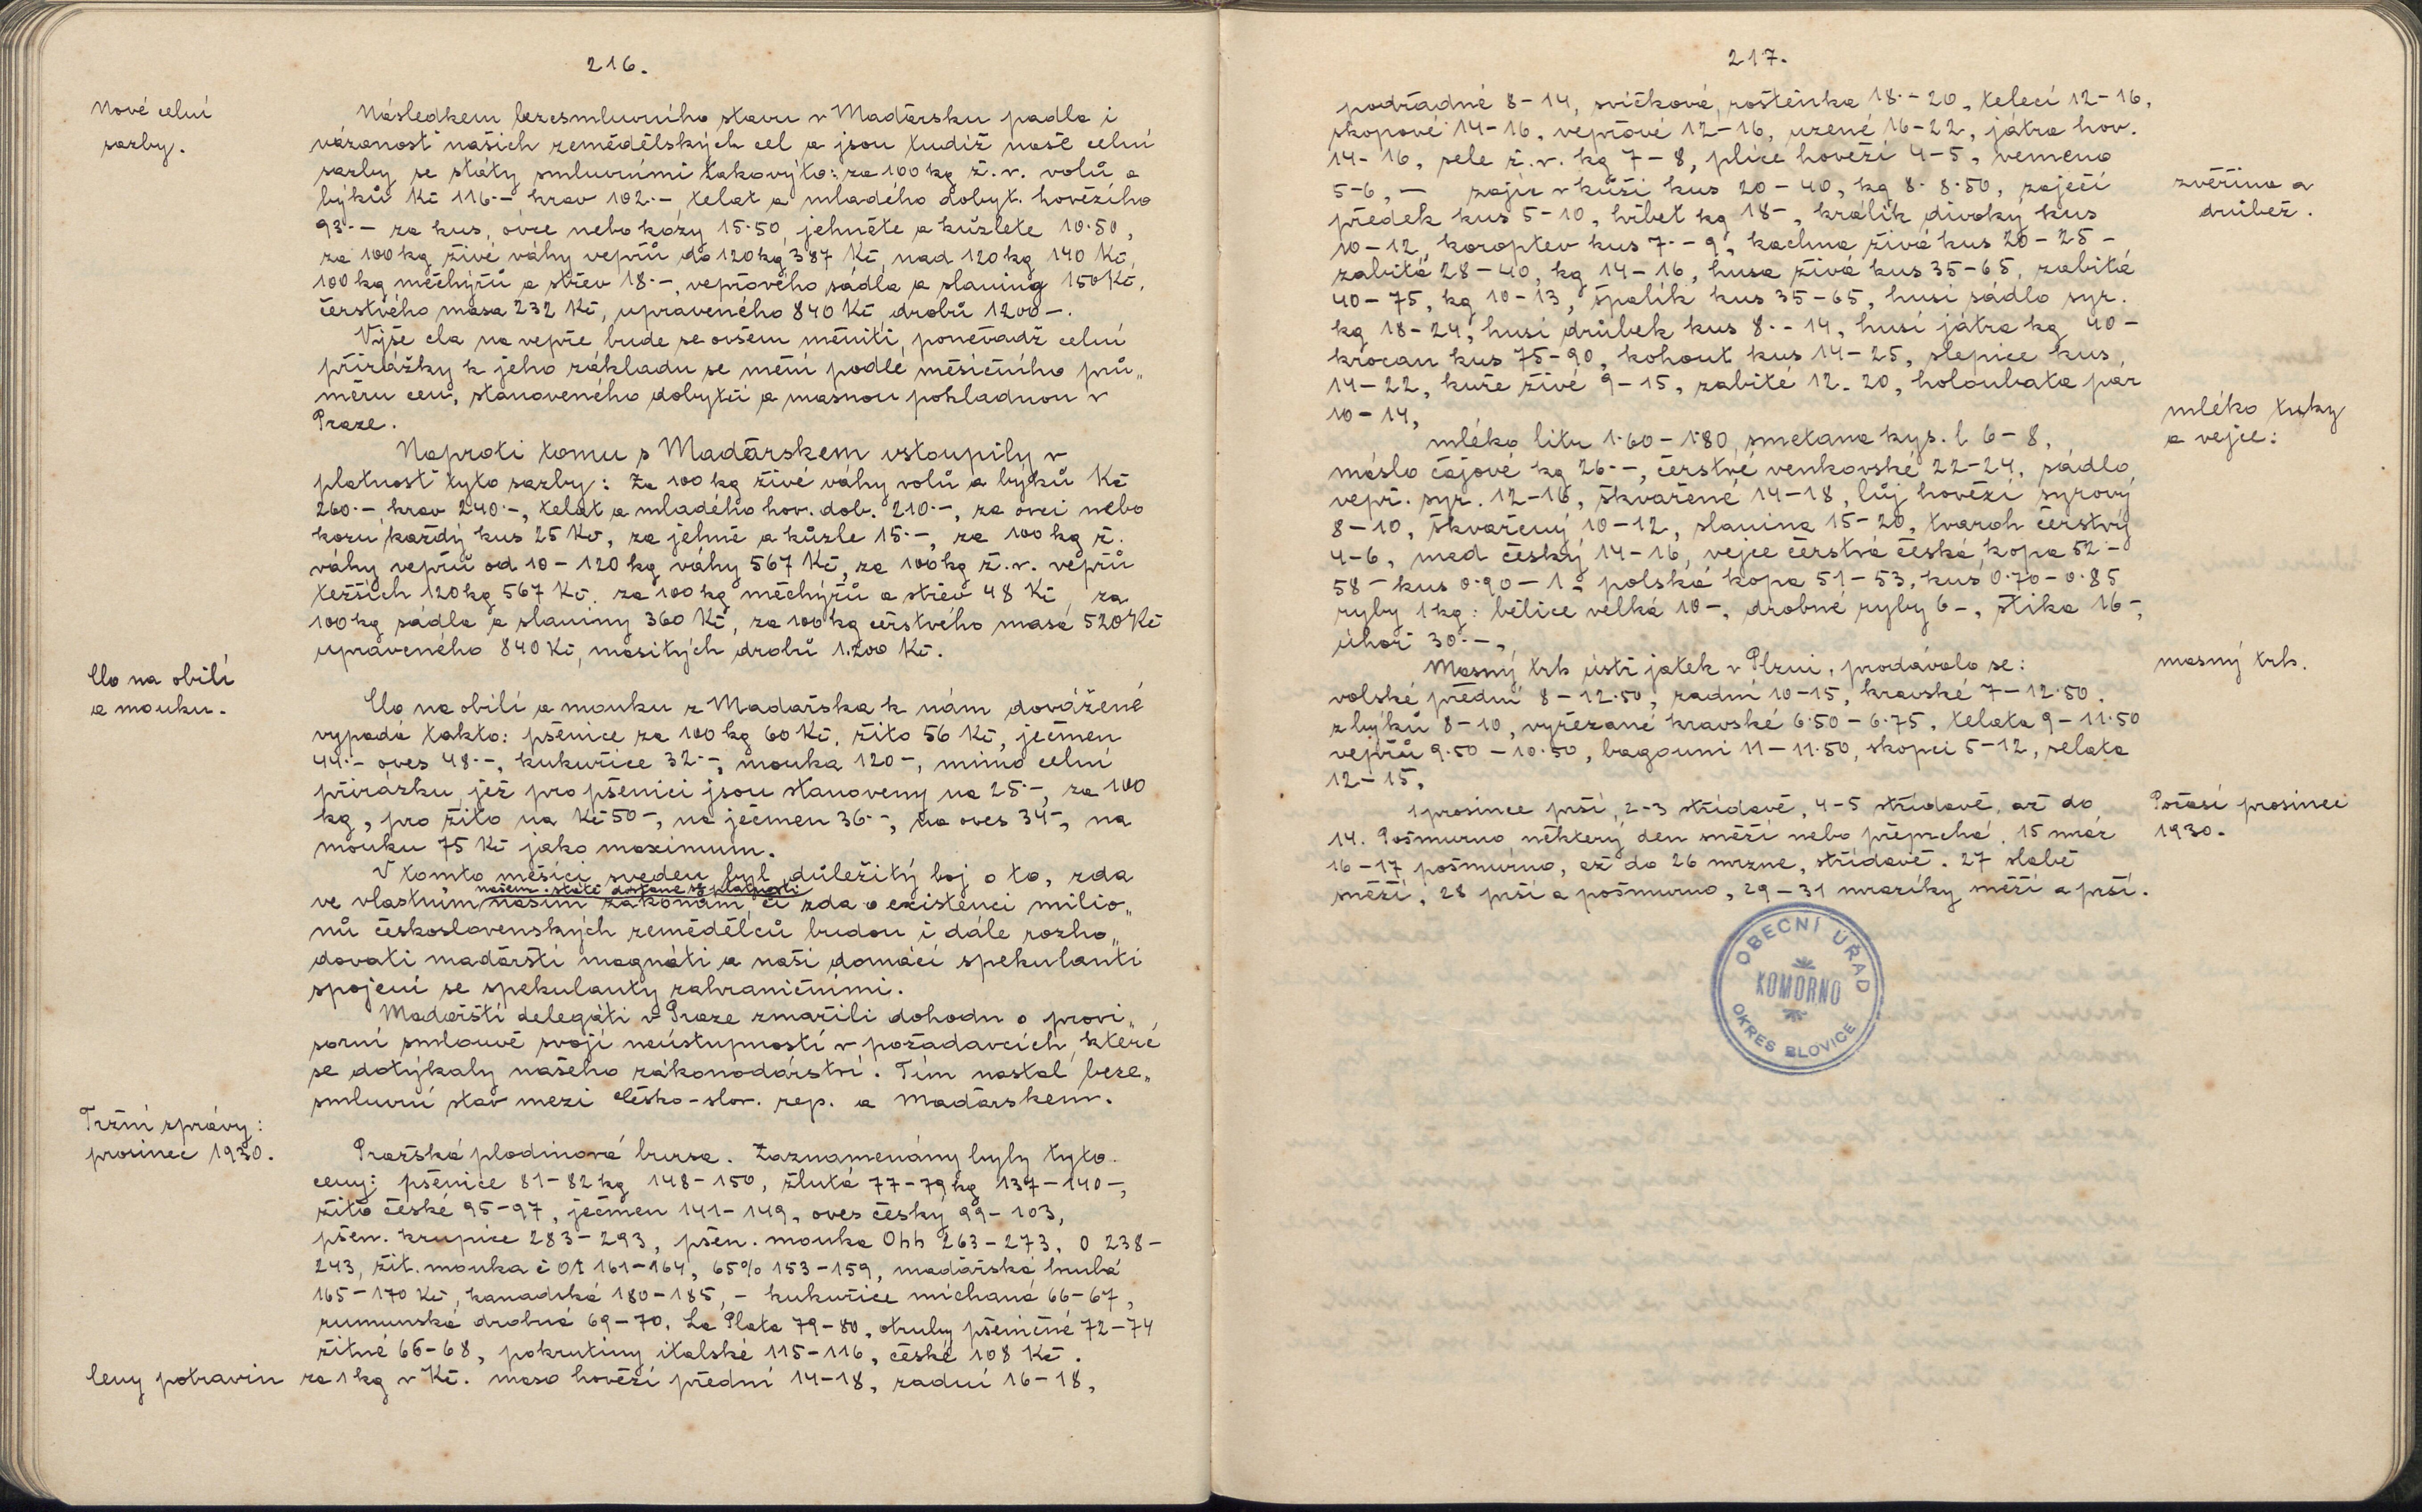 216.
Nové celní
sazby.
Následkem bezesmluvního stavu v Maďarsku padla i
vázanost našich zemědělských cel a jsou tudíž naše celní
sazby se státy smluvními takovýto: za 100 kg ž. v. volů a
býků Kč 116·- krav 102·- telat a mladého dobyt. hovězího
93·- za kus, ovce nebo kozy 15·50, jehněte a kůzlete 10·50,
za 100 kg živé váhy vepřů do 120 kg 387 Kč, nad 120 kg 140 Kč,
100 kg měchýřů a střev 18·-, vepřového sádla a slaniny 150 Kč,
čerstvého masa 232 Kč, upraveného 840 Kč drobů 1200-.
Výše cla na vepře bude se ovšem měniti, poněvadž celní
přirážky k jeho základu se mění podle měsíčního prů„
měru cen, stanoveného dobytčí a masnou pokladnou v
Praze.
Naproti tomu s Maďarskem vstoupily v
platnost tyto sazby: Za 100 kg živé váhy volů a býků Kč
260·- krav 240·-, telat a mladého hov. dob. 210·-, za ovci nebo
kozu, každý kus 25 Kč, za jehně a kůzle 15·-, za 100 kg ž.
váhy vepřů od 10-120 kg váhy 567 Kč, za 100 kg ž. v. vepřů
težších 120 kg 567 Kč. za 100 kg měchýřů a střev 48 Kč, za
100 kg sádla a slaniny 360 Kč, za 100 kg čerstvého masa 520 Kč
upraveného 840 Kč, masitých drobů 1.200 Kč.
Clo na obilí
a mouku.
Clo na obilí a mouku z Maďarska k nám dovážené
vypadá takto: pšenice za 100 kg 60 Kč, žito 56 Kč, ječmen
44·- oves 48·-, kukuřice 32·-, mouka 120-, mimo celní
přirážku, jež pro pšenici jsou stanoveny na 25·-, za 100
kg, pro žito na Kč 50-, na ječmen 36·-, na oves 34-, na
mouku 75 Kč jako maximum.
V tomto měsíci sveden byl důležitý boj o to, zda
našem státě dostane se platnosti
ve vlastním našim zákonům, či zda o existenci milio„
nů československých zemědělců budou i dále rozho„
dovati maďarští magnáti a naši domácí spekulanti
spojení se spekulanty zahraničními.
Maďarští delegáti v Praze zmařili dohodu o provi„
sorní smlouvě svojí neústupností v požadavcích, které
se dotýkaly našeho zákonodárství. Tím nastal beze„
smluvní stav mezi Česko-slov. rep. a Maďarskem.
Tržní zprávy:
prosinec 1930.
Pražská plodinová bursa. Zaznamenány byly tyto
ceny: pšenice 81-82 kg 148-150, žlutá 77-79 kg 137-140-,
žito české 95-97, ječmen 141-149, oves český 99-103,
pšen. krupice 283-293, pšen. mouka 0hh 263-273, 0 238-
243, žit. mouka č 01 161-164, 65% 153-159, maďarská hrubá
165-170 Kč, kanadská 180-185, - kukuřice míchaná 66-67,
rumunská drobná 69-70, La Plata 79-80, otruby pšeničné 72-74
žitné 66-68, pokrutiny italské 115-116, české 108 Kč.
Ceny potravin za 1 kg v Kč. maso hovězí přední 14-18, zadní 16-18,
217.
podřadné 8-14, svíčková, roštěnka 18·-20, telecí 12-16,
skopové 14-16, vepřové 12-16, uzené 16-22, játra hov.
14-16, sele ž. v. kg 7-8, plíce hovězí 4-5, vemeno
5-6, - zajíc v kůži kus 20-40, kg 8· 8·50, zaječí
předek kus 5-10, hřbet kg 18-, králík divoký kus
10-12, koroptev kus 7·-9, kachna živá kus 20-25-
zabitá 28-40, kg 14-16, husa živá kus 35-65, zabitá
40-75, kg 10-13, špalík kus 35-65, husí sádlo syr.
kg 18-24, husí drůbek kus 8·-14, husí játra kg 40-
krocan kus 75-90, kohout kus 14-25, slepice kus
14-22, kuře živé 9-15, zabité 12-20, holoubata pár
10-14,
zvěřina a
drůbež.
mléko litr 1·60-1·80, smetana kys. l 6-8,
máslo čajové kg 26·-, čerstvé venkovské 22-24, sádlo
vepř. syr. 12-16, škvařené 14-18, lůj hovězí syrový
8-10, škvařený 10-12, slanina 15-20, tvaroh čerstvý
4-6, med český 14-16, vejce čerstvá česká kopa 52·-
58- kus 0·90-1- polská kopa 51-53, kus 0·70-0·85
ryby 1 kg: bělice velká 10-, drobné ryby 6-, štika 16-,
úhoř 30·-,
mléko tuky
a vejce:
Masný trh ústř. jatek v Plzni, prodávalo se:
volské přední 8-12·50, zadní 10-15, kravské 7-12·50,
z býků 8-10, vyřezané kravské 6·50-6·75, telata 9-11·50
vepřů 9·50-10·50, bagouni 11-11·50, skopci 5-12, selata
12-15,
masný trh.
1 prosince prší, 2-3 střídavě, 4-5 střídavě, až do
14. Pošmurno některý den sněží nebo přeprchá, 15 mráz
16-17 pošmurno, až do 26 mrzne, střídavě. 27 slabě
sněží, 28 prší a pošmurno, 29-31 mrazíky sněží a prší.
Počasí prosinec
1930.
OBECNÍ ÚŘAD
KOMORNO
OKRES BLOVICE